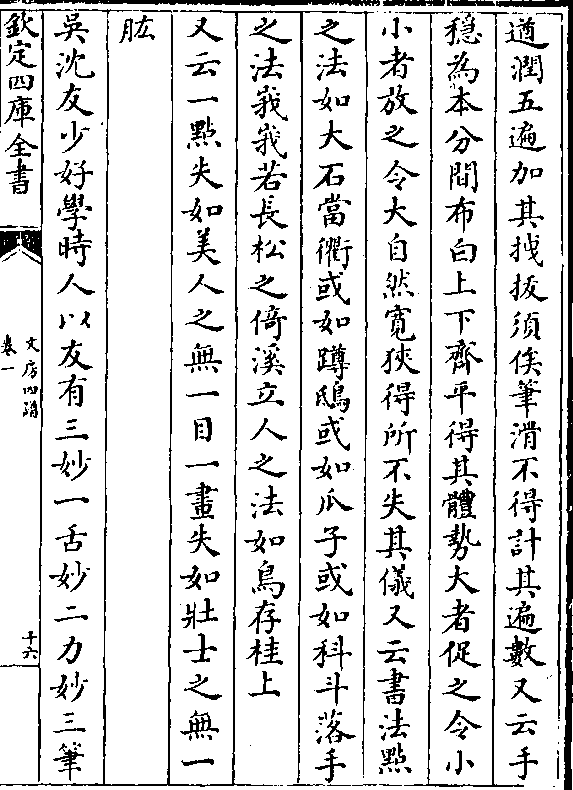 遒潤五遍加其找拔須俟筆滑不得計其遍數又云手
穩為本分間布白上下齊平得其體勢大者促之令小
小者放之令大自然寛狹得所不失其儀又云書法點
之法如大石當衢或如蹲鴟或如瓜子或如科斗落手
之法峩峩若長松之倚溪立人之法如鳥存柱上
又云一㸃失如美人之無一目一畫失如壯士之無一
肱
吳沈友少好學時人以友有三妙一舌妙二力妙三筆
欽定四庫全書
文房四譜
卷一
十六